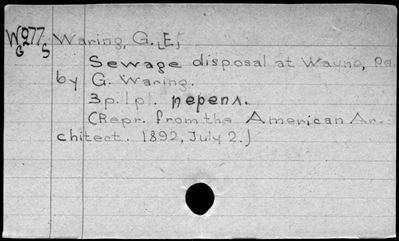 W277 Waring, G. [E]
G S
Sewage disposal at Wayne, Pa.
by G. Waring.
3p. 1pl. перепл.
(Repr. from the American Ar-
chitect. 1892, July 2.)